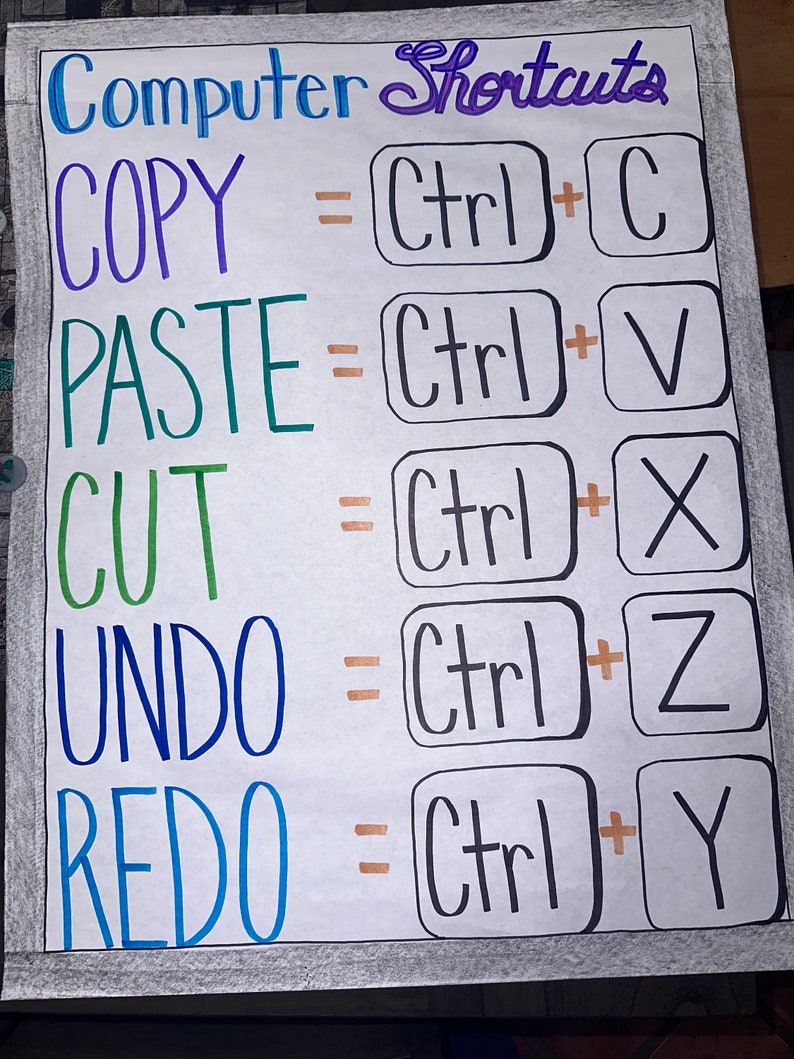 Computer Shortcuts
COPY = Ctrl + C
PASTE = Ctrl + V
CUT = Ctrl + X
UNDO = Ctrl + Z
REDO = Ctrl + Y